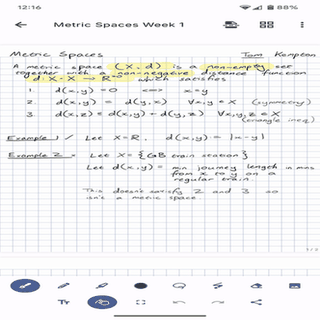 12:16 88%
Metric Spaces Week 1
Metric Spaces Tom Kempton
A metric space (X, d) is a non-empty set
together with a non-negative distance function
d: X × X → R≥0 which satisfies
1. d(x,y) = 0 <=> x=y
2. d(x,y) = d(y,x) ∀x,y ∈ X (symmetry)
3. d(x,z) ≤ d(x,y) + d(y,z) ∀x,y,z ∈ X
(triangle ineq)
Example 1 Let X=R, d(x,y) = |x-y|
Example 2 Let X = {GB train station}
Let d(x,y) = min journey length in mins
from x to y on a
regular train
This doesn't satisfy 2 and 3 so
isn't a metric space
Tr